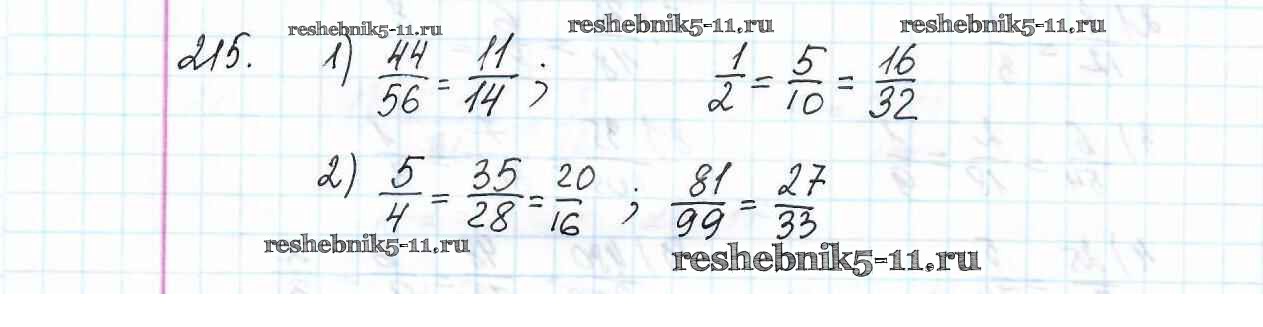 reshebnik5-11.ru reshebnik5-11.ru reshebnik5-11.ru
215. 1) 44/56 = 11/14 ; 1/2 = 5/10 = 16/32
2) 5/4 = 35/28 = 20/16 ; 81/99 = 27/33
reshebnik5-11.ru reshebnik5-11.ru